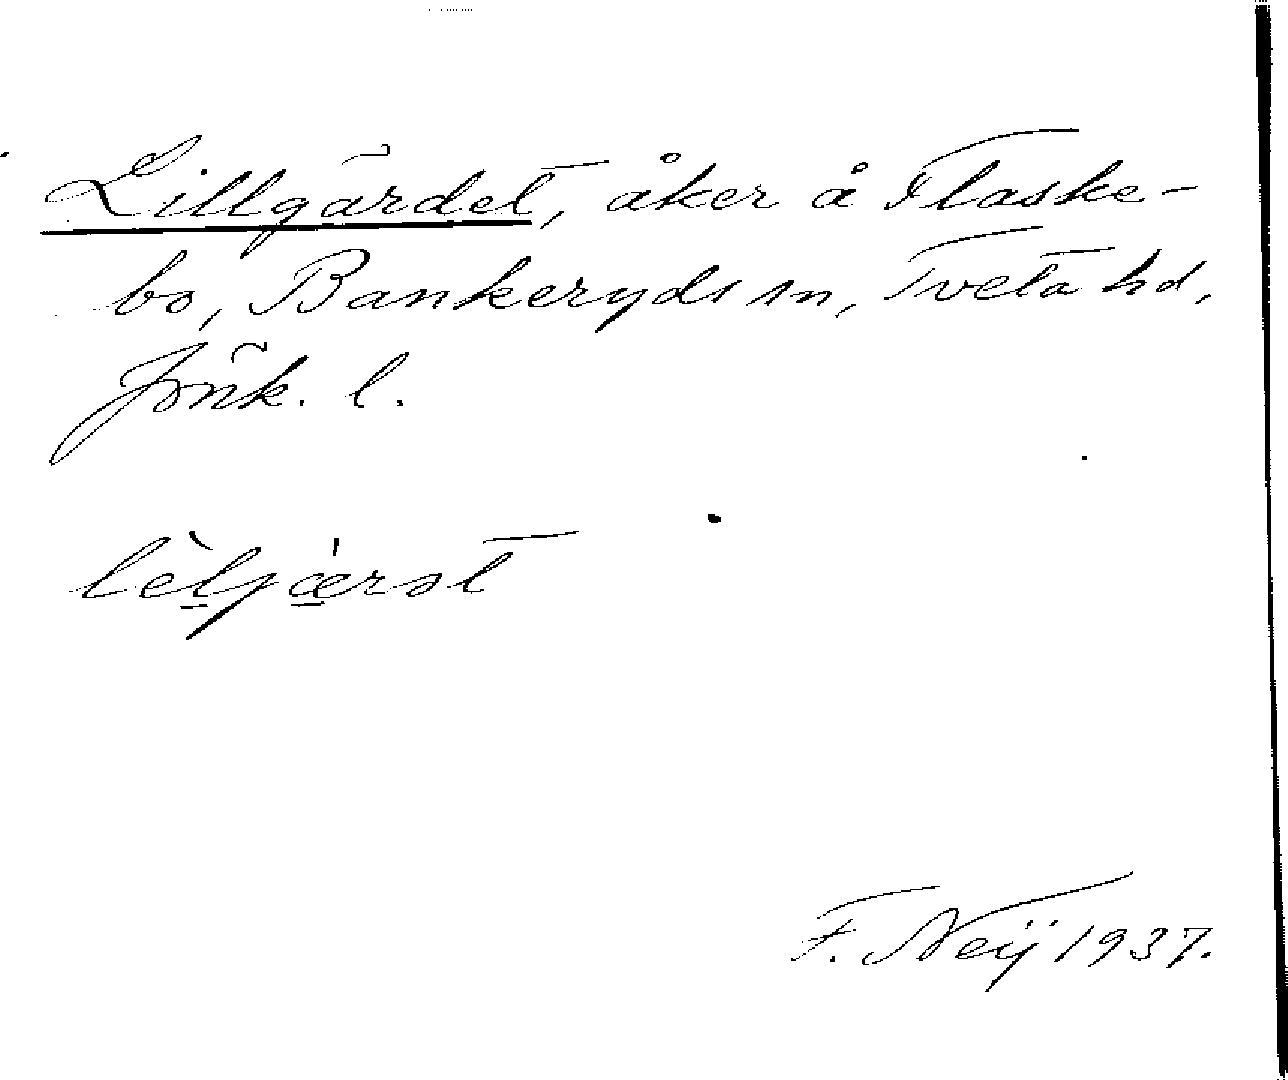 Lillgärdet, åker å Flaske-
bo, Bankeryds sn, Tveta hd,
Jönk. l.
lèljæ̀rət
F. Neij 1937.